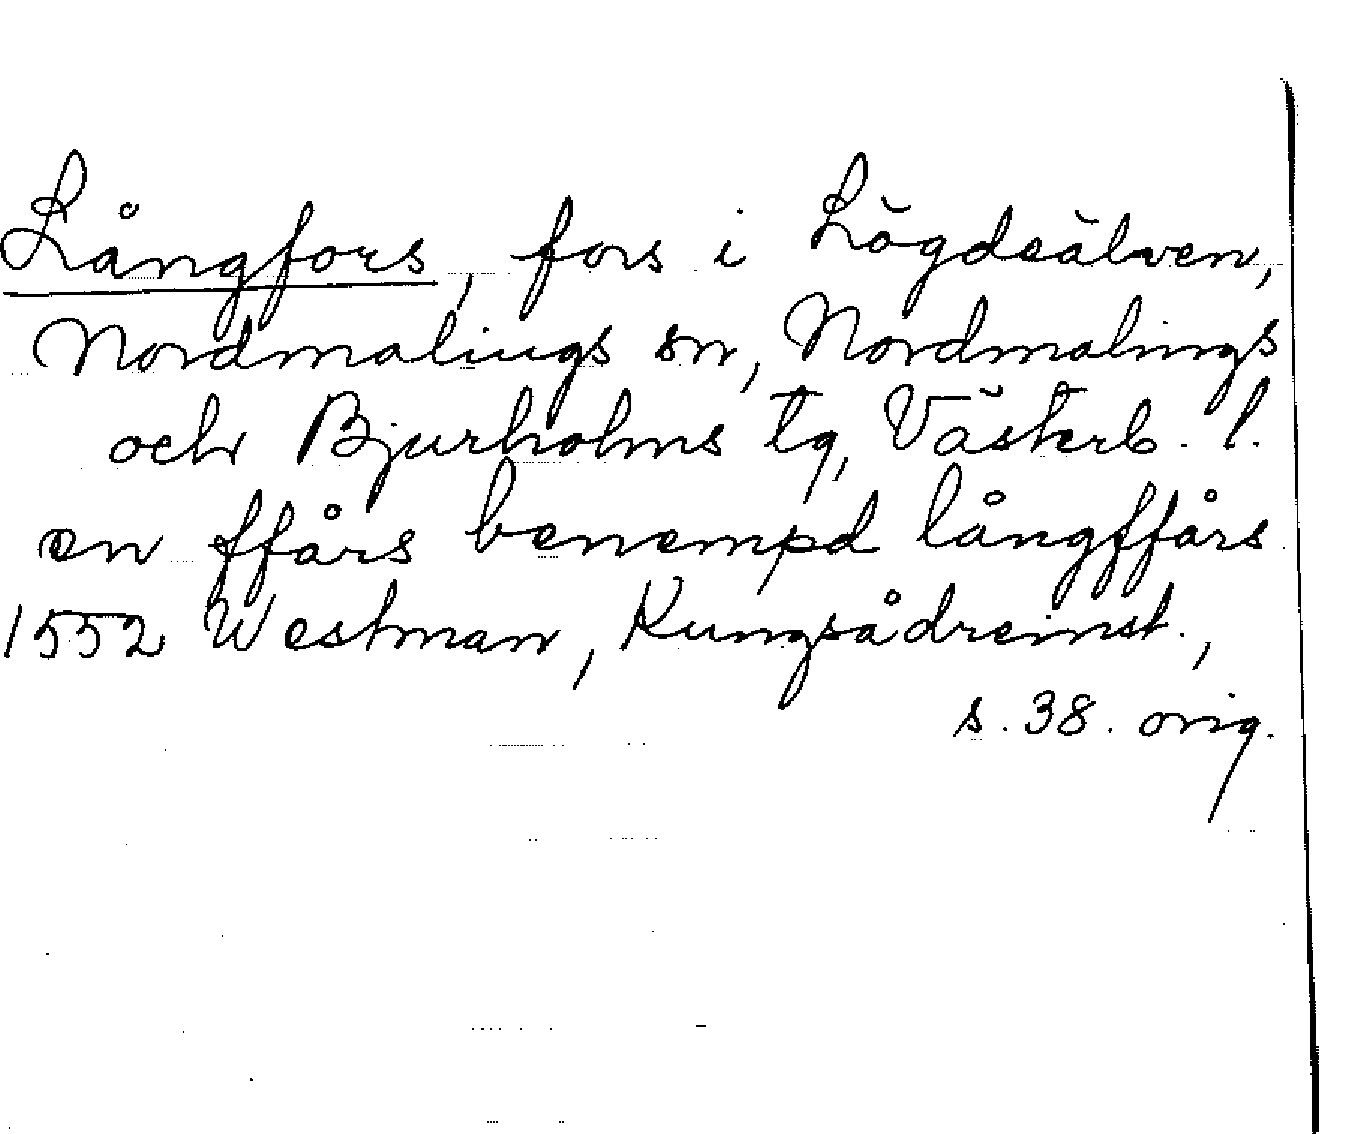 Långfors, fors i Lögdeälven,
Nordmalings sn, Nordmalings
och Bjurholms tg, Västerb. l.
en ffårs benempd långffårs
1552 Westman, Kungsådreinst.,
s. 38. orig.